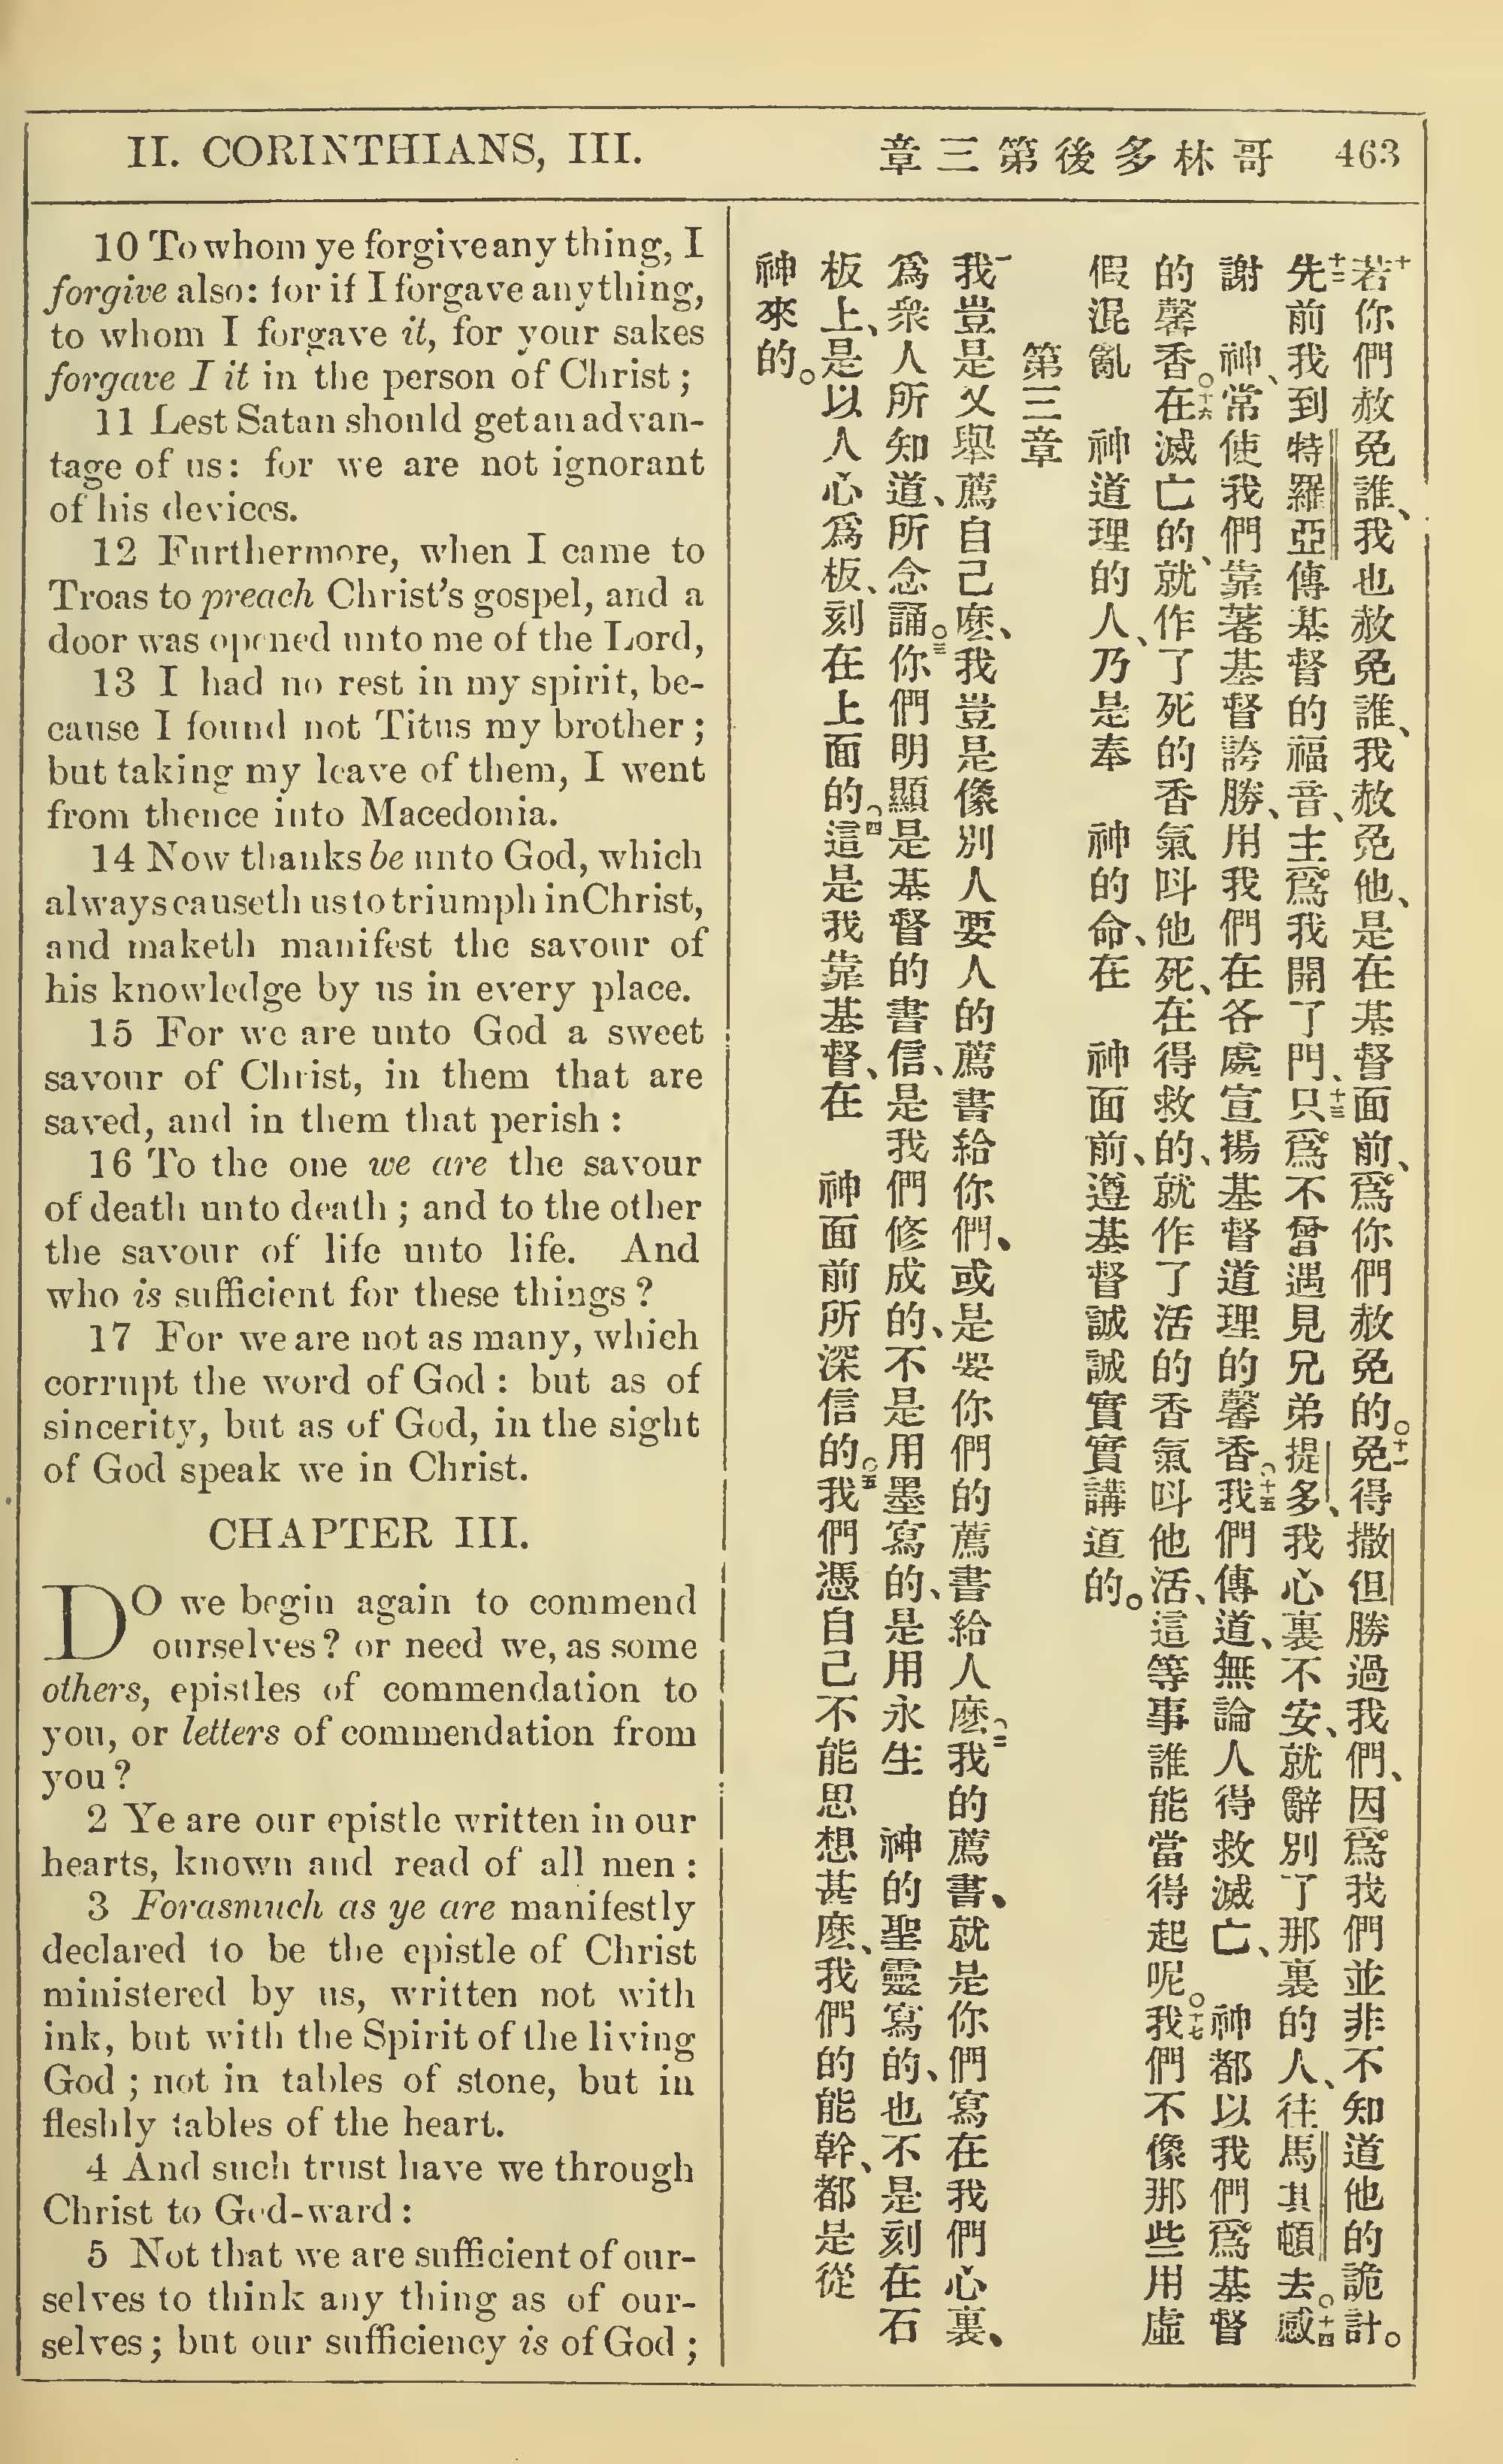 II. CORINTHIANS, III.
哥林多後第三章 463
10 To whom ye forgive any thing, I
forgive also: for if I forgave anything,
to whom I forgave it, for your sakes
forgave I it in the person of Christ;
11 Lest Satan should get an advan-
tage of us: for we are not ignorant
of his devices.
12 Furthermore, when I came to
Troas to preach Christ's gospel, and a
door was opened unto me of the Lord,
13 I had no rest in my spirit, be-
cause I found not Titus my brother;
but taking my leave of them, I went
from thence into Macedonia.
14 Now thanks be unto God, which
always causeth us to triumph in Christ,
and maketh manifest the savour of
his knowledge by us in every place.
15 For we are unto God a sweet
savour of Christ, in them that are
saved, and in them that perish:
16 To the one we are the savour
of death unto death; and to the other
the savour of life unto life. And
who is sufficient for these things?
17 For we are not as many, which
corrupt the word of God: but as of
sincerity, but as of God, in the sight
of God speak we in Christ.
CHAPTER III.
DO we begin again to commend
ourselves? or need we, as some
others, epistles of commendation to
you, or letters of commendation from
you?
2 Ye are our epistle written in our
hearts, known and read of all men:
3 Forasmuch as ye are manifestly
declared to be the epistle of Christ
ministered by us, written not with
ink, but with the Spirit of the living
God; not in tables of stone, but in
fleshly tables of the heart.
4 And such trust have we through
Christ to God-ward:
5 Not that we are sufficient of our-
selves to think any thing as of our-
selves; but our sufficiency is of God;
十若你們赦免誰、我也赦免誰、我赦免他、是在基督面前、爲你們赦免的。十一免得撒但勝過我們、因爲我們並非不知道他的詭計。
十二先前我到特羅亞傳基督的福音、主爲我開了門、十三只爲不曾遇見兄弟提多、我心裏不安、就辭別了那裏的人、往馬其頓去。十四感
謝 神、常使我們靠著基督誇勝、用我們在各處宣揚基督道理的馨香。十五我們傳道、無論人得救滅亡、 神都以我們爲基督
的馨香。十六在滅亡的、就作了死的香氣呌他死、在得救的、就作了活的香氣呌他活、這等事誰能當得起呢。十七我們不像那些用虛
假混亂 神道理的人、乃是奉 神的命、在 神面前、遵基督誠誠實實講道的。
第三章
一我豈是又舉薦自己麽、我豈是像別人要人的薦書給你們、或是要你們的薦書給人麽。二我的薦書、就是你們寫在我們心裏、
爲衆人所知道、所念誦。三你們明顯是基督的書信、是我們修成的、不是用墨寫的、是用永生 神的聖靈寫的、也不是刻在石
板上、是以人心爲板、刻在上面的。四這是我靠基督、在 神面前所深信的。五我們憑自己不能思想甚麽、我們的能幹、都是從
神來的。